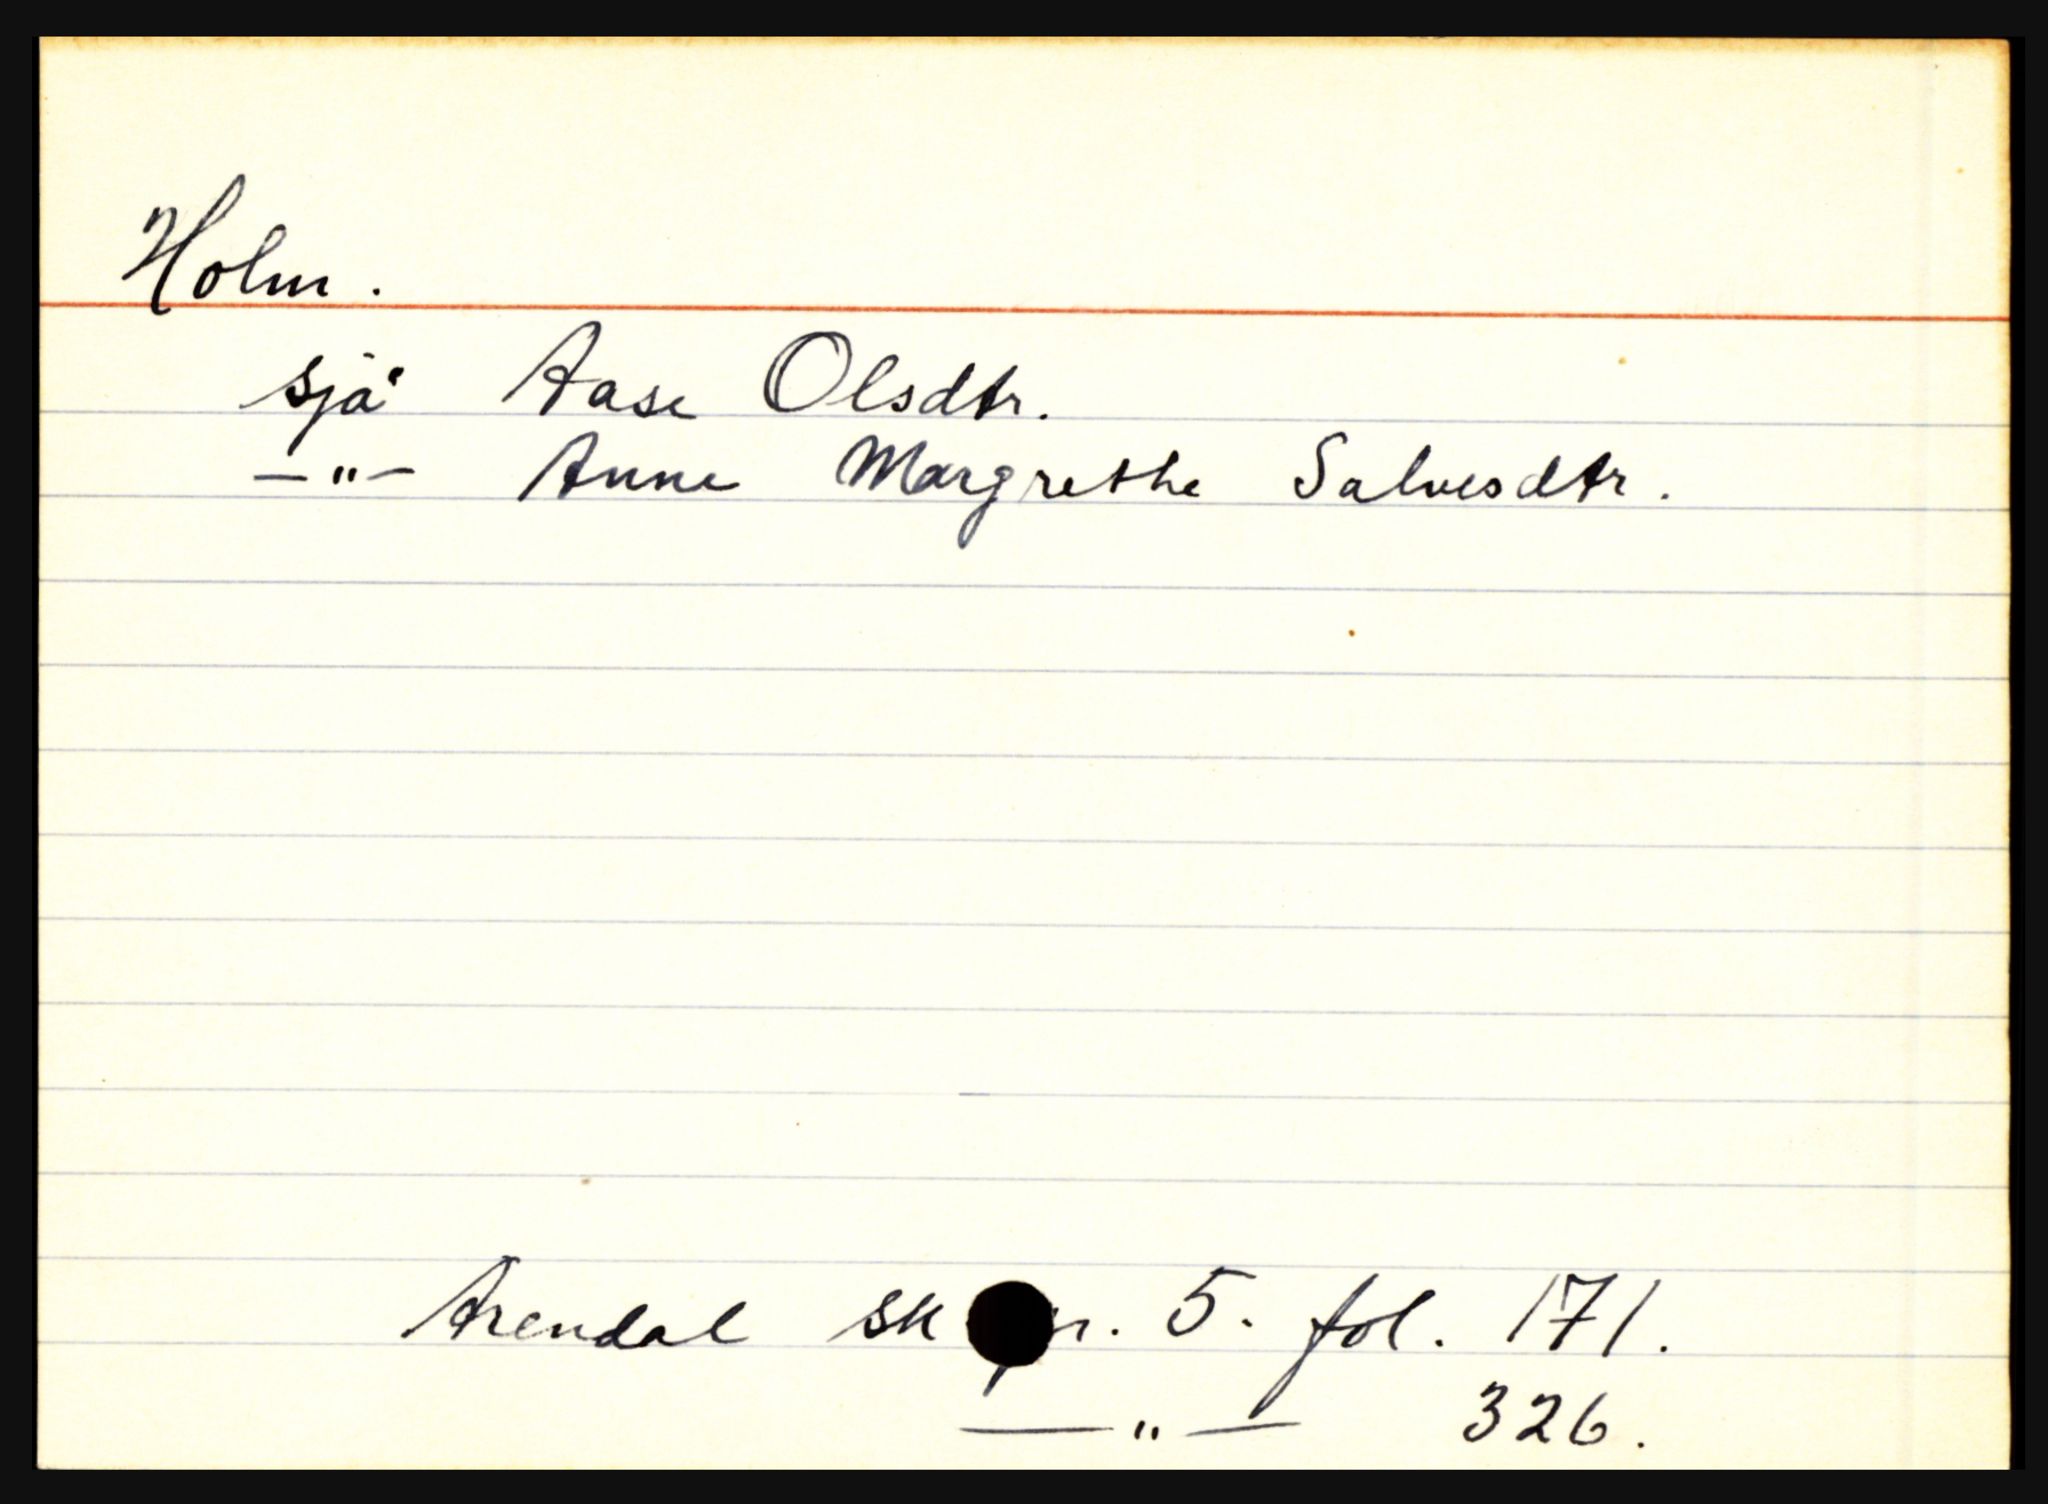 Holm.
sjå Aase Olsdtr.
— " — Anne Margrethe Salvesdtr.
Arendal 5. fol. 171.
— " — 326.